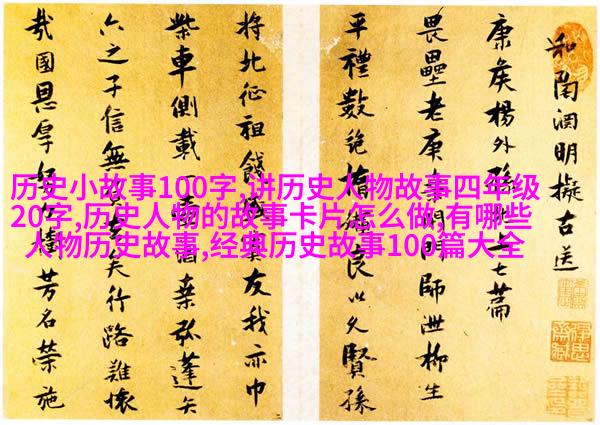 和陶淵明擬古送
康侯楊外孫北上七篇
畏壘老庚桑閉門師泄柳生
平禮數絶良以久賢孫
將北征祖餞賓友我亦巾
柴車側載一壺酒桑弧蓬矢
六之子信無負矣行路難懷
哉國恩厚好樹芳名榮施
历史小故事100字,讲历史人物故事四年级
20字,历史人物的故事卡片怎么做,有哪些
人物历史故事,经典历史故事100篇大全